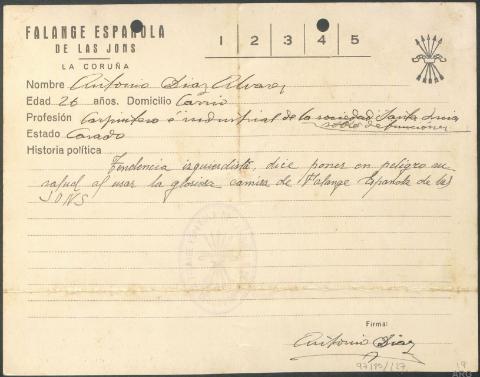 FALANGE ESPAÑOLA
DE LAS JONS
LA CORUÑA
1 2 3 4 5
Nombre Antonio Diaz Alvarez
Edad 26 años. Domicilio
Profesión Carpintero é industrial de la sociedad Santa Lucia
sobre defunciones
Estado Casado
Historia política
Tendencia izquierdista, dice poner en peligro su
salud al usar la gloriosa camisa de Falange Española de las
JONS
Firma:
Antonio Diaz
19
ARG